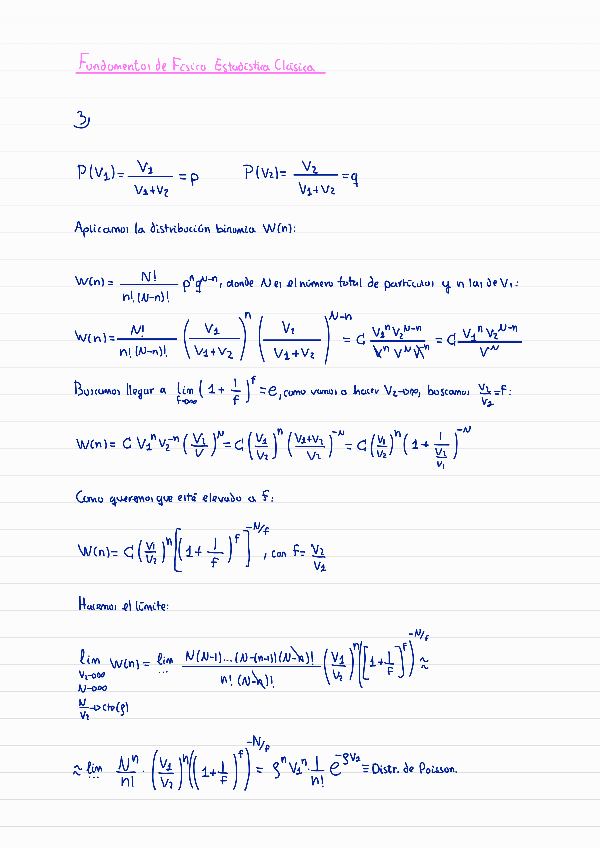 Fundamentos de Física Estadística Clásica
3)
P(V₁) = V₁/(V₁+V₂) = p    P(V₂) = V₂/(V₁+V₂) = q
Aplicamos la distribución binomia W(n):
W(n) = N!/(n!(N-n)!) pⁿq^(N-n), donde N es el número total de partículas y n las de V₁:
W(n) = N!/(n!(N-n)!) (V₁/(V₁+V₂))ⁿ (V₂/(V₁+V₂))^(N-n) = C V₁ⁿV₂^(N-n)/(Vⁿ V^N V^(-n)) = C V₁ⁿV₂^(N-n)/V^N
Buscamos llegar a lim f→∞ (1 + 1/f)^f = e, como vamos a hacer V₂→∞, buscamos V₂/V₁ = f:
W(n) = C V₁ⁿV₂^(-n) (V₂/V)^N = C (V₁/V₂)ⁿ ((V₁+V₂)/V₂)^(-N) = C (V₁/V₂)ⁿ (1 + 1/(V₂/V₁))^(-N)
Como queremos que esté elevado a f:
W(n) = C (V₁/V₂)ⁿ [(1 + 1/f)^f]^(-N/f), con f = V₂/V₁
Hacemos el límite:
lim V₂→∞ N→∞ N/V₂→cte(ρ) W(n) = lim ... N(N-1)...(N-(n-1))(N-n)!/(n!(N-n)!) (V₁/V₂)ⁿ ([1+1/f]^f)^(-N/f) ≈
≈ lim ... Nⁿ/n! · (V₁/V₂)ⁿ ((1+1/f)^f)^(-N/f) = ρⁿ V₁ⁿ · 1/n! e^(-ρV₂) ≡ Distr. de Poisson.